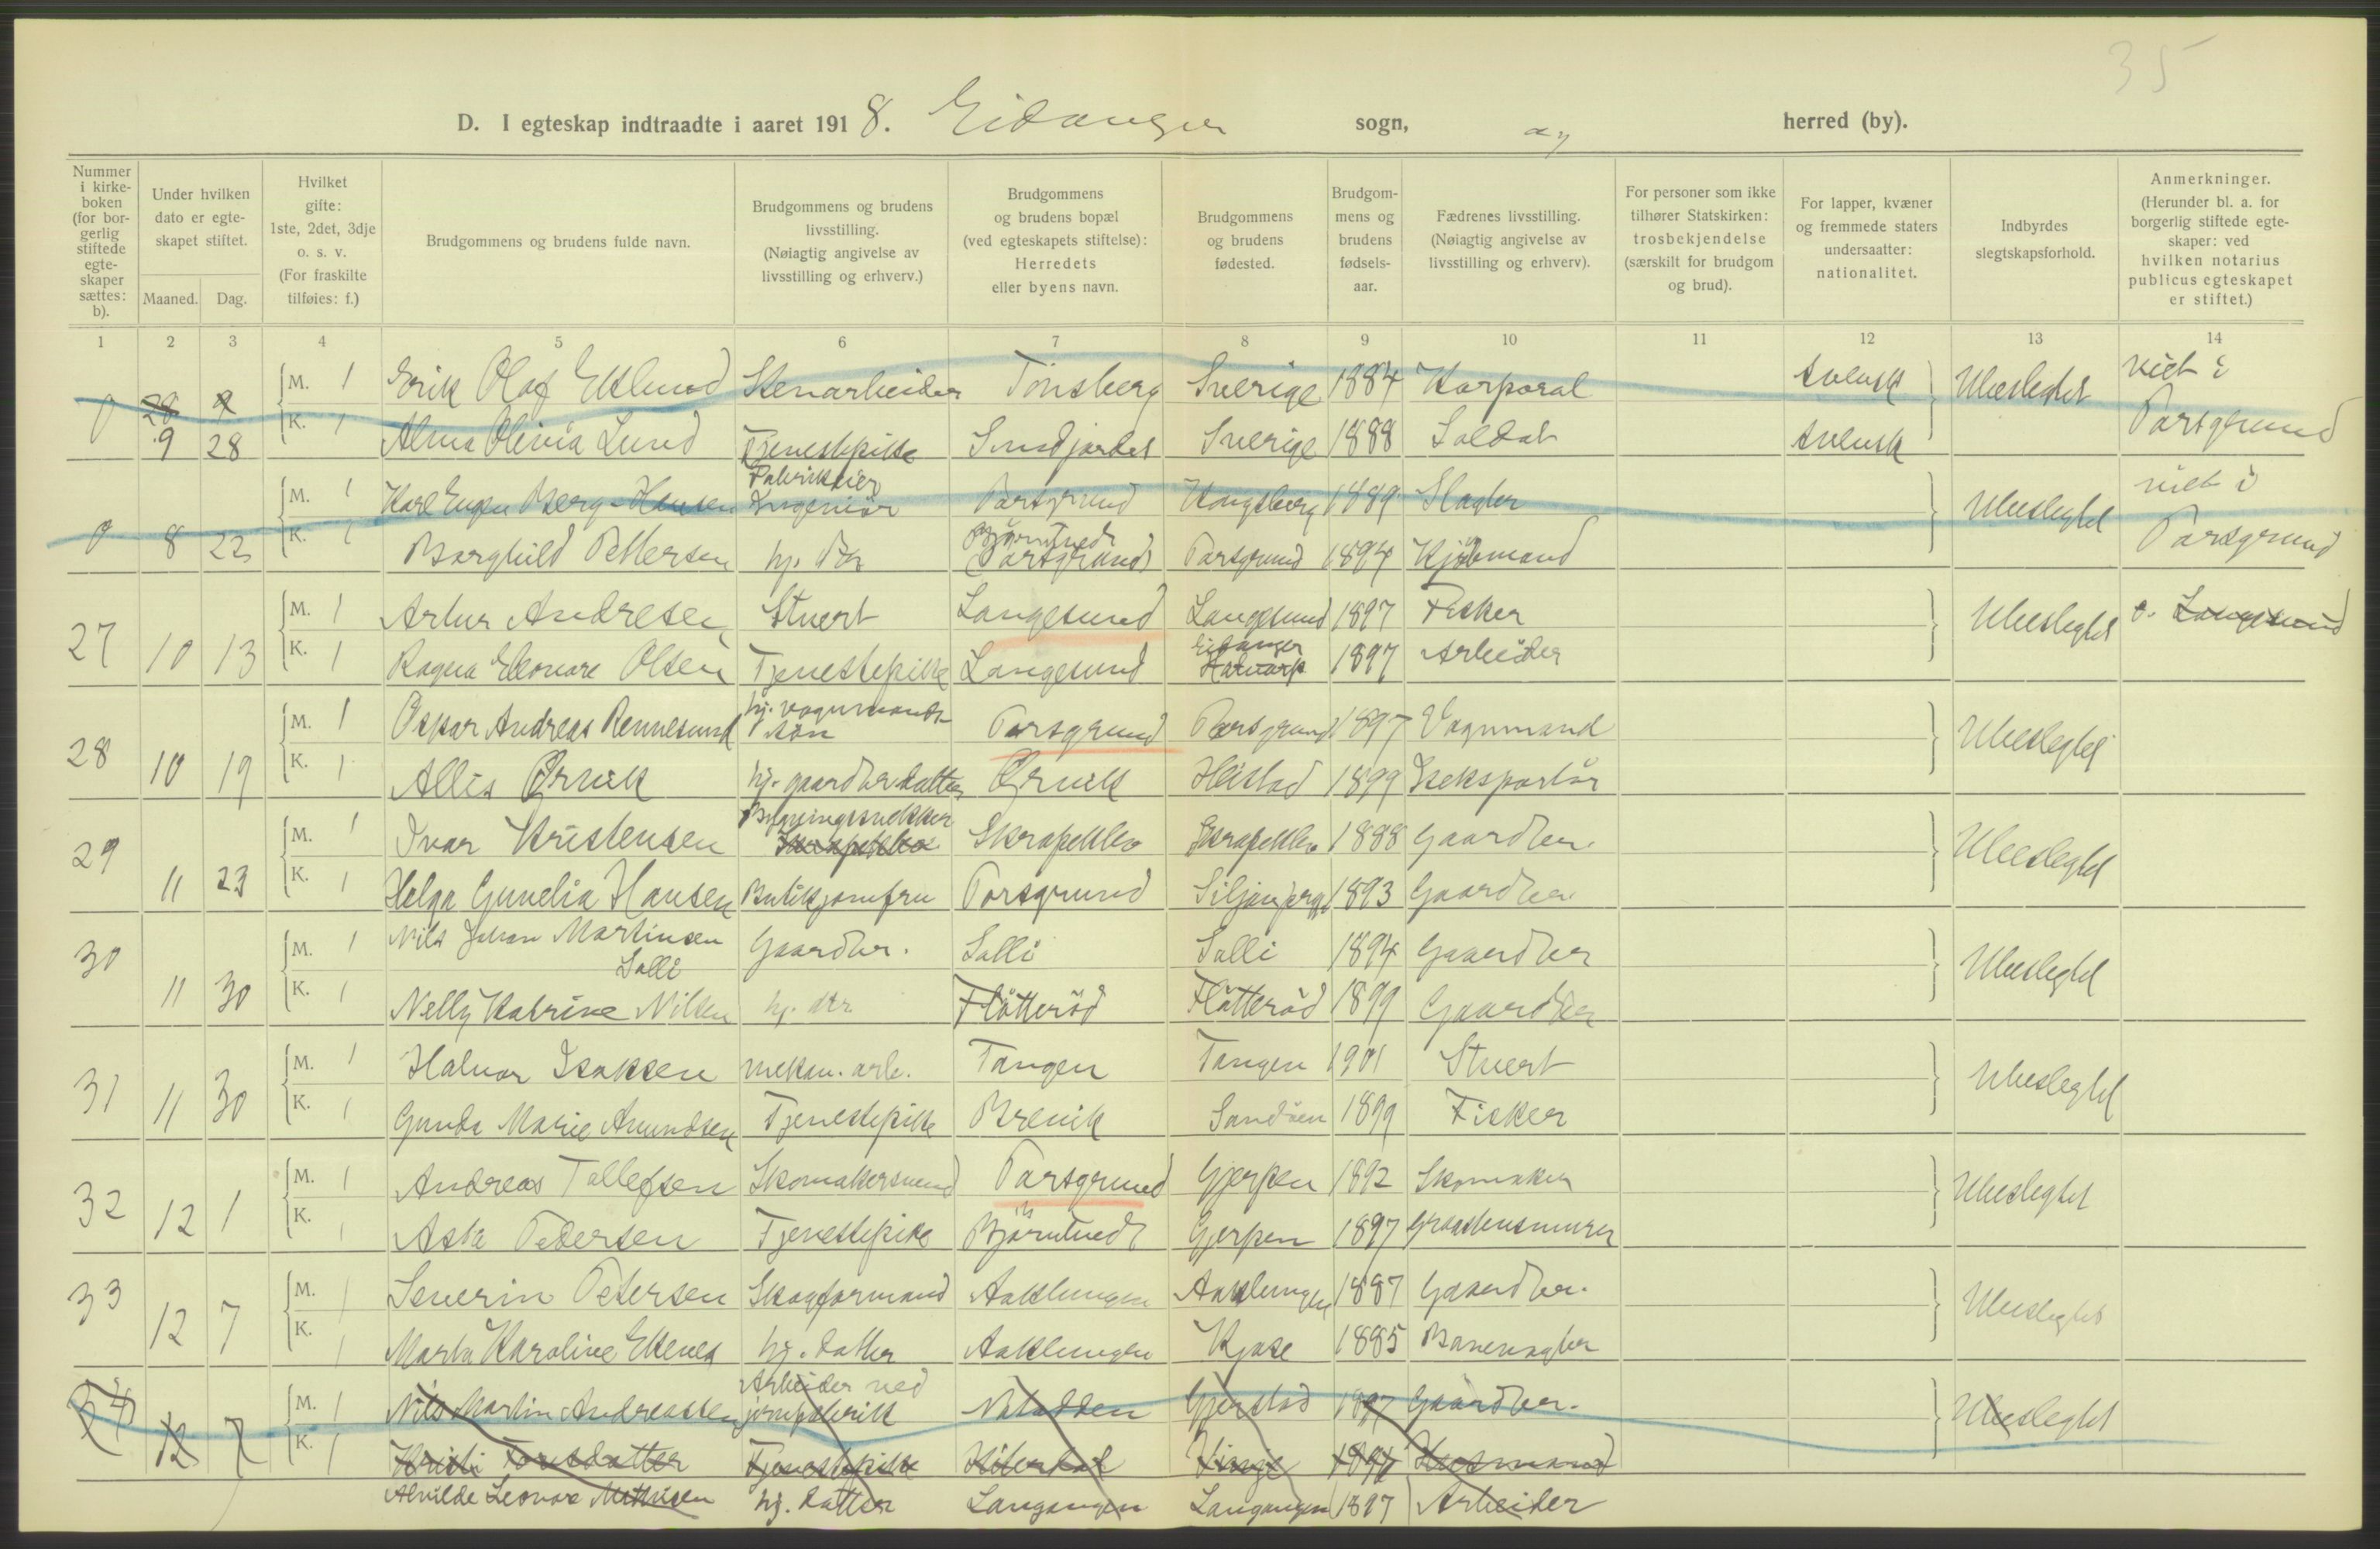 35
D. I egteskap indtraadte i aaret 1918. Eidanger sogn, herred (by).
Nummer i kirkeboken (for borgerlig stiftede egteskaper sættes: b).
Under hvilken dato er egteskapet stiftet.
Maaned. Dag.
Hvilket gifte: 1ste, 2det, 3dje o. s. v. (For fraskilte tilføies: f.)
Brudgommens og brudens fulde navn.
Brudgommens og brudens livsstilling. (Nøiagtig angivelse av livsstilling og erhverv.)
Brudgommens og brudens bopæl (ved egteskapets stiftelse): Herredets eller byens navn.
Brudgommens og brudens fødested.
Brudgommens og brudens fødselsaar.
Fædrenes livsstilling. (Nøiagtig angivelse av livsstilling og erhverv).
For personer som ikke tilhører Statskirken: trosbekjendelse (særskilt for brudgom og brud).
For lapper, kvæner og fremmede staters undersaatter: nationalitet.
Indbyrdes slegtskapsforhold.
Anmerkninger. (Herunder bl. a. for borgerlig stiftede egteskaper: ved hvilken notarius publicus egteskapet er stiftet.)
1 2 3 4 5 6 7 8 9 10 11 12 13 14
0 28 9 M. 1 Erik Olof Eklund Stenarbeider Tönsberg Sverige 1884 Korporal svensk Ubeslegtet viet i Porsgrund
9 28 K. 1 Alma Olivia Lund Tjenestepike Sverige 1888 Soldat svensk
M. 1 Karl Eugen Berg-Hansen Fabrikeier Ingeniör Porsgrund Kongsberg 1889 Slagter Ubeslegtet viet i Porsgrund
0 8 22 K. 1 Borghild Pettersen hj. dtr Björntvedt (Porsgrund) Porsgrund 1894 Kjöbmand
27 10 13 M. 1 Artur Andresen Stuert Langesund Langesund 1897 Fisker Ubeslegtet Langesund
K. 1 Ragna Eleonore Olsen Tjenestepike Langesund Eidanger 1897 Arbeider
28 10 19 M. 1 Oskar Andreas Rennesund hj. vognmands sön Porsgrund Porsgrund 1897 Vognmand Ubeslegtet
K. 1 Allis Ørvik hj. gaardbr datter Ørvik Heistad 1899 Iseksportör
29 11 23 M. 1 Ivar Kristensen Bygningssnekker Skrapeklev Skrapeklev Skrapeklev 1888 Gaardbr. Ubeslegtet
K. 1 Helga Gunelia Hansen Butikjomfru Porsgrund 1893 Gaardbr.
30 11 30 M. 1 Nils Johan Martinsen Solli Gaardbr. Solli Solli 1894 Gaardbr Ubeslegtet
K. 1 Nelly Katrine Nilsen hj. dtr Flötteröd Flötteröd 1899 Gaardbr
31 11 30 M. 1 Halvor Isaksen mekan. arb. Tangen Tangen 1901 Stuert Ubeslegtet
K. 1 Gunda Marie Amundsen Tjenestepike Brevik Sandöen 1899 Fisker
32 12 1 M. 1 Andreas Tollefsen Skomakersvend Porsgrund Gjerpen 1892 Skomaker Ubeslegtet
K. 1 Asta Pedersen Tjenestepike Björntvedt Gjerpen 1897 Graastensmurer
33 12 7 M. 1 Severin Petersen Skogformand Aaklungen Aaklungen 1887 Gaardbr. Ubeslegtet
K. 1 Marta Karoline Ekenes hj. datter Aaklungen Kjose 1885 Banevogter
34 12 7 M. 1 Nils Martin Andreassen Arbeider ved jernfabrikk Notodden Gjerstad 1897 Gaardbr. Ubeslegtet
K. 1 Kristi Toresdatter Tjenestepike Hiterdal Hinje Husmand
Alvilde Leonore Mathisen hj. datter Langangen Langangen 1897 Arbeider